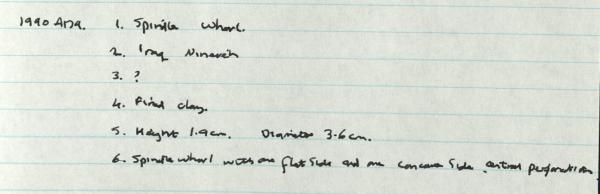 1990 A179. 1. Spindle Whorl.
2. Iraq Nineveh
3. ?
4. Fired clay.
5. Height 1.9cm. Diameter 3.6cm.
6. Spindle whorl with one flat side and one concave side. central perforation